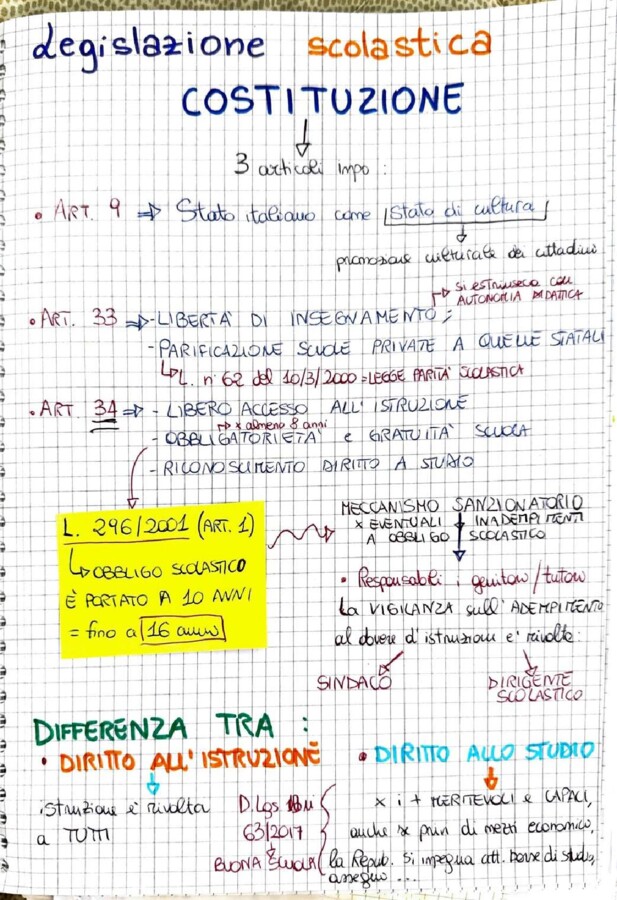 Legislazione scolastica
COSTITUZIONE
3 articoli impo :
• ART. 9 ⇒ Stato italiano come Stato di cultura
promozione culturale dei cittadini
• ART. 33 ⇒ - LIBERTA' DI INSEGNAMENTO;
↳ si estrinseca con
AUTONOMIA DIDATTICA
- PARIFICAZIONE SCUOLE PRIVATE A QUELLE STATALI
↳ L. n° 62 del 10/3/2000 = LEGGE PARITÀ SCOLASTICA
• ART. 34 ⇒ - LIBERO ACCESSO ALL'ISTRUZIONE
↳ x almeno 8 anni
- OBBLIGATORIETA' e GRATUITA' SCUOLA
- RICONOSCIMENTO DIRITTO A STUDIO
L. 296/2001 (ART. 1)
↳ OBBLIGO SCOLASTICO
È PORTATO A 10 ANNI
= fino a 16 anni
MECCANISMO SANZIONATORIO
x EVENTUALI INADEMPIMENTI
A OBBLIGO SCOLASTICO
• Responsabili i genitori/tutori
La VIGILANZA sull'ADEMPIMENTO
al dovere d'istruzione e' rivolta:
SINDACO
DIRIGENTE
SCOLASTICO
DIFFERENZA TRA :
• DIRITTO ALL'ISTRUZIONE
istruzione è rivolta
a TUTTI
• DIRITTO ALLO STUDIO
D.Lgs
63/2017
BUONA SCUOLA
x i + MERITEVOLI e CAPACI,
anche x privi di mezzi economici,
la Repub. si impegna att. borse di studio,
assegno ...